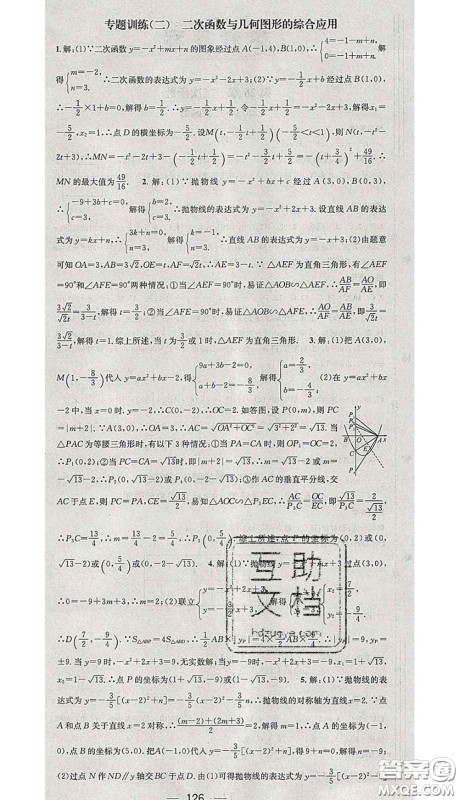 专题训练(二) 二次函数与几何图形的综合应用
1.解:(1)∵二次函数 y=-x²+mx+n 的图象经过点 A(-1,4),B(1,0),∴{4=-1-m+n, 0=-1+m+n. 解得
{m=-2, n=3. ∴二次函数的表达式为 y=-x²-2x+3;(2)∵y=-1/2x+b 经过点 B(1,0),
∴-1/2×1+b=0,解得 b=1/2,∴y=-1/2x+1/2. 令-1/2x+1/2=-x²-2x+3,解得 x₁=
-5/2,x₂=1,∴点 D 的横坐标为-5/2. 设M(t,-1/2t+1/2)(-5/2<t<1),则 N(t,-t²-
2t+3),∴MN=-t²-2t+3-(-1/2t+1/2)=-t²-3/2t+5/2=-(t+3/4)²+49/16,∴
MN 的最大值为49/16. 2.解:(1)∵抛物线 y=-x²+bx+c 经过 A(3,0),B(0,3),
∴{-9+3b+c=0, c=3, 解得{b=2, c=3, ∴抛物线的表达式为 y=-x²+2x+3. 设直线 AB 的表达
式为 y=kx+n,∴{3k+n=0, n=3, 解得{k=-1, n=3. ∴直线 AB 的表达式为 y=-x+3;(2)由题意
可知 OA=3,AB=3√2,OE=t,AF=√2t,∴AE=3-t. ∵△AEF 为直角三角形,有∠AEF
=90°和∠AFE=90°两种情况:①当∠AEF=90°时,易证△AOB∽△AEF,∴AB/AF=AO/AE,即
3√2/√2t=3/3-t,解得 t=3/2;②当∠AFE=90°时,易证△AOB∽△AFE,∴AO/AF=AB/AE,即3/√2t=
3√2/3-t,解得 t=1. 综上所述,当 t 为3/2或 1 时,△AEF 为直角三角形. 3.解:(1)把 A(3,0),
M(1,-8/3)代入 y=ax²+bx-2,得{9a+3b-2=0, a+b-2=-8/3, 解得{a=2/3, b=-4/3. (2)在 y=ax²+bx
-2 中,当 x=0 时,y=-2,∴C(0,-2),∴OC=2. 如答图,设 P(0,m),则 PC
=|m+2|. ∵OA=3,∴AC=√OA²+OC²=√3²+2²=√13. 当
△PAC 为等腰三角形时,有以下 3 种情况:①当 PA=CA 时,则 OP₁=OC=2,
∴P₁(0,2);②当 PC=CA=√13时,即|m+2|=√13,∴m=√13-2 或 m=
-√13-2,∴P₂(0,√13-2)或P₃(0,-√13-2);③作 AC 的垂直平分线,交
AC 于点 E,则 PC=PA,CE=√13/2,易知△AOC∽△P₄EC,∴AC/P₄C=OC/EC,即√13/P₄C=2/(√13/2),
∴P₄C=13/4,∴m=13/4-2=5/4,∴P₄(0,5/4). 综上所述,点 P 的坐标为(0,2)或(0,
√13-2)或(0,-√13-2)或(0,5/4). 4.解:(1)
∴0=-9+3m+3,∴m=2;(2)联立
∴D(7/2,-9/4). ∵S△ABP=4S△ABD,∴1/2AB×|yP|=4×1/2AB×9/4,∴|yP|=9,yP=
±9. 当 yP=9 时,-x²+2x+3=9,无实数解;当 yP=-9 时,-x²+2x+3=-9,解得 x₁=1+√13,
x₂=1-√13,∴点 P 的坐标为(1+√13,-9)或(1-√13,-9). 5.解:(1)∵抛物线的表
达式为 y=-3/5[(x-2)²+n]=-3/5(x-2)²-3/5n,∴抛物线的对称轴为直线 x=2. ∵点
A 和点 B 关于直线 x=2 对称,∴(m-2)+(2m+3)/2=2,解得 m=1,∴点 A 的坐标为(-1,
0),点 B 的坐标为(5,0). 把 A(-1,0)代入 y=-3/5[(x-2)²+n],得 9+n=0,解得 n=-9;
(2)过点 N 作 ND∥y 轴交 BC 于点 D. 由(1)可得抛物线的表达式为 y=-3/5[(x-2)²-9]
126
互助文档
hdzuoye.com
答案圈